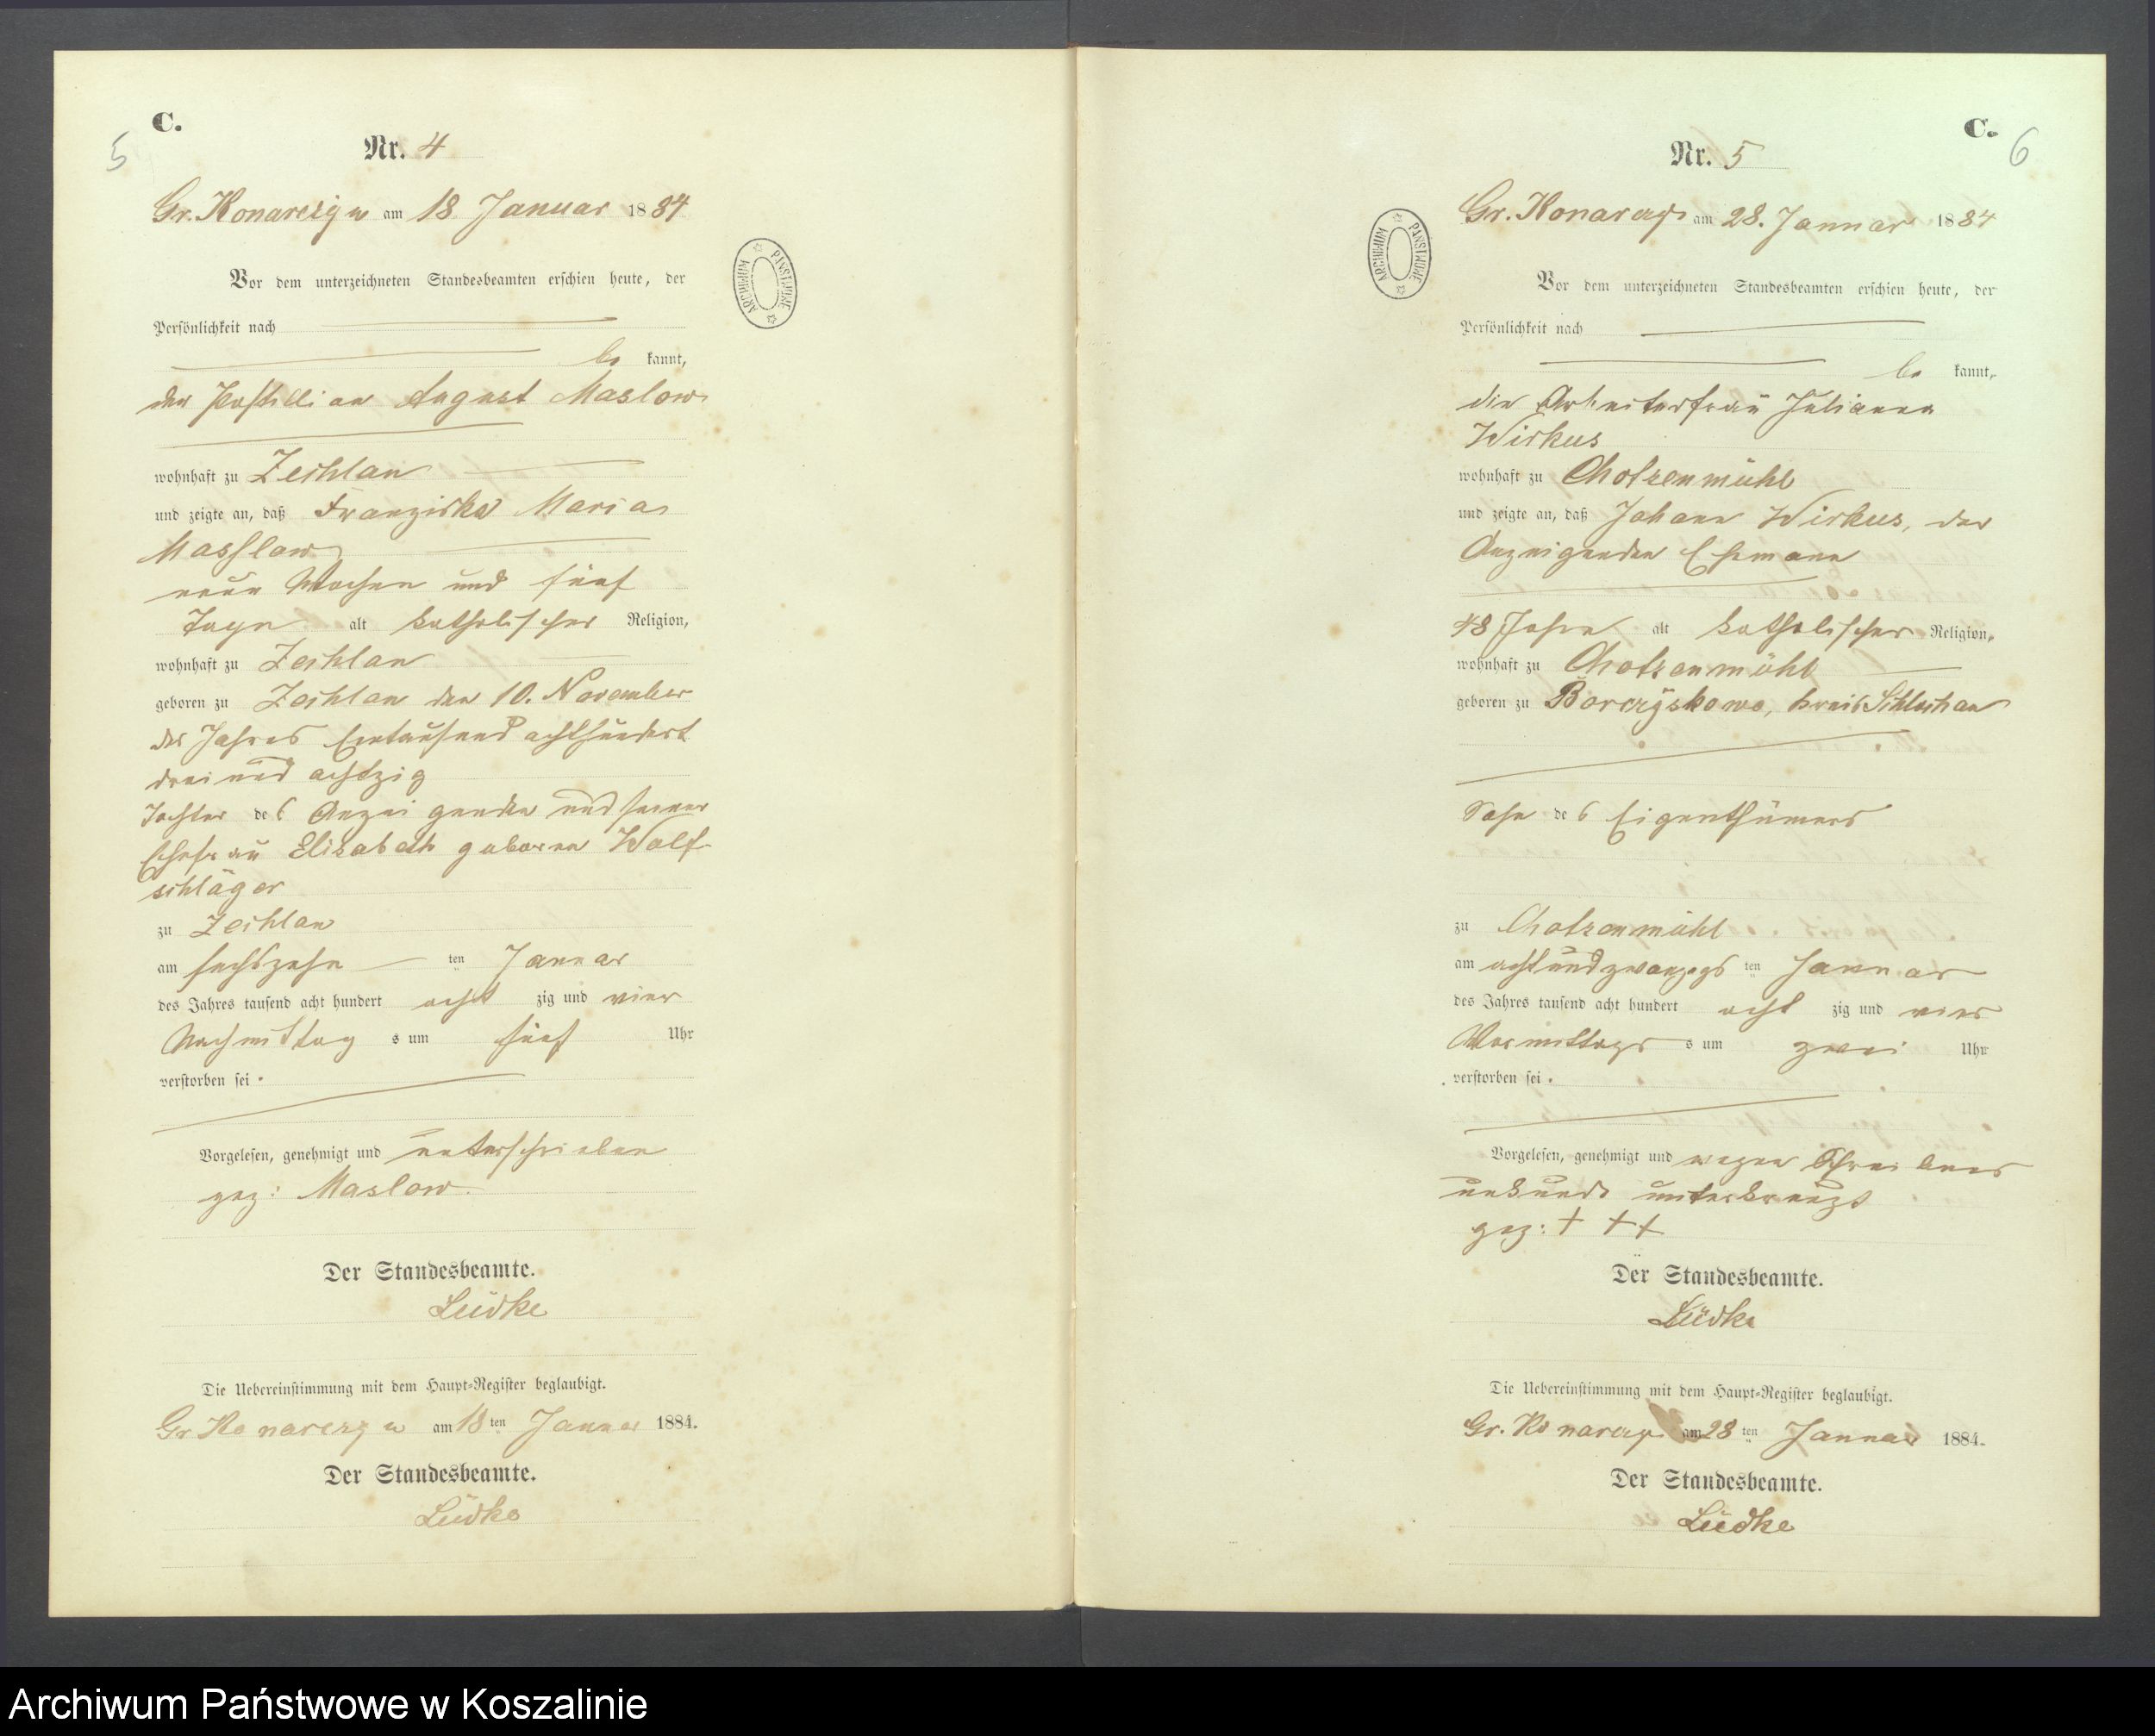 C.
5
Nr. 4
Gr. Konarczyn am 18 Januar 1884
Vor dem unterzeichneten Standesbeamten erschien heute, der
Persönlichkeit nach
be kannt,
der Postillion August Maslow
wohnhaft zu Zechlau
und zeigte an, daß Franziska Maria
Masslow
neun Wochen und fünf
Tage alt katholischer Religion,
wohnhaft zu Zechlau
geboren zu Zechlau den 10. November
des Jahres Eintausend achthundert
drei und achtzig
Tochter des Anzeigenden und seiner
Ehefrau Elisabeth geboren Wolf-
schläger
zu Zechlau
am sechszehn ten Januar
des Jahres tausend acht hundert acht zig und vier
Nachmittag s um fünf Uhr
verstorben sei.
Vorgelesen, genehmigt und unterschrieben
gez: Maslow.
Der Standesbeamte.
Lüdke
Die Uebereinstimmung mit dem Haupt-Register beglaubigt.
Gr Konarczyn am 18 ten Januar 1884.
Der Standesbeamte.
Lüdke
ARCHIWUM PAŃSTWOWE
C.
6
Nr. 5
Gr. Konarczyn am 28. Januar 1884
Vor dem unterzeichneten Standesbeamten erschien heute, der
Persönlichkeit nach
be kannt,
die Arbeiterfrau Julianna
Wirkus
wohnhaft zu Chotzenmühl
und zeigte an, daß Johann Wirkus, der
Anzeigenden Ehemann
48 Jahre alt katholischer Religion,
wohnhaft zu Chotzenmühl
geboren zu Borczyskowo, Kreis Schlochau
Sohn des Eigenthümers
zu Chotzenmühl
am achtundzwanzigs ten Januar
des Jahres tausend acht hundert acht zig und vier
Vormittags s um zwei Uhr
verstorben sei.
Vorgelesen, genehmigt und wegen Schreibens
unkunde unterkreuzt
gez: + + +
Der Standesbeamte.
Lüdke
Die Uebereinstimmung mit dem Haupt-Register beglaubigt.
Gr. Konarczyn am 28 ten Januar 1884.
Der Standesbeamte.
Lüdke
ARCHIWUM PAŃSTWOWE
Archiwum Państwowe w Koszalinie